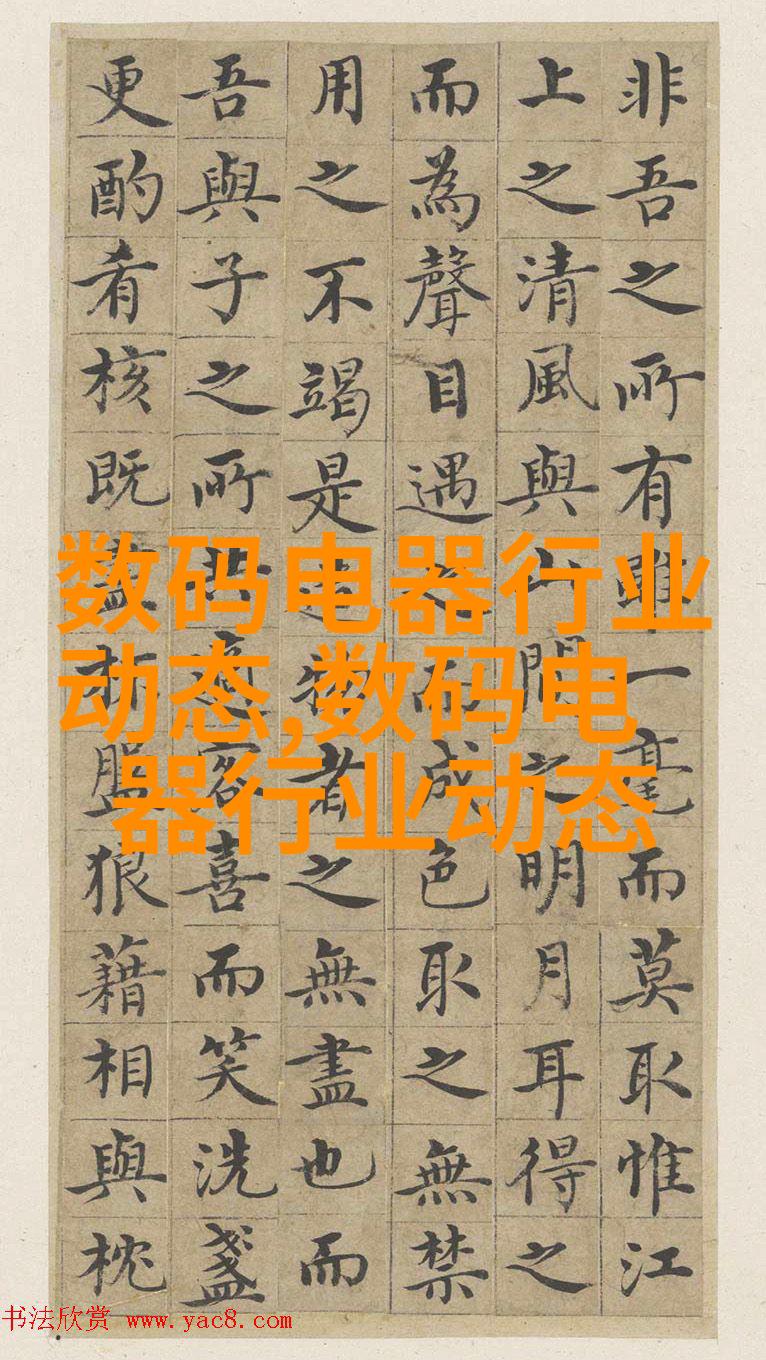 非吾之所有雖一毫而莫取惟江
上之清風與山間之明月耳得之
而為聲目遇之而成色取之無禁
用之不竭是造物者之無盡也而
吾與子之所共適客喜而笑洗盞
更酌肴核既盡杯盤狼藉相與枕
数码电器行业
动态,数码电
器行业动态
书法欣赏 www.yac8.com